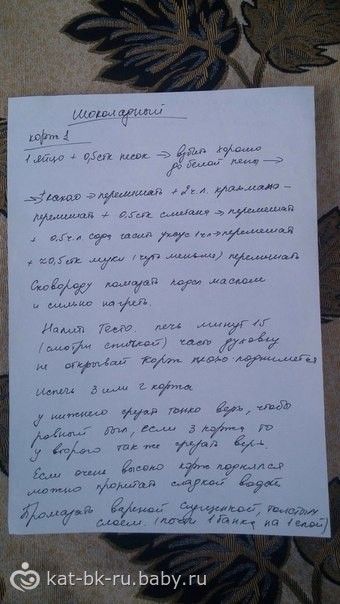 Шоколадный
корж 1
1 яйцо + 0,5 стк песок → взбить хорошо
до белой пены →
→ + какао → перемешать + 2 ч.л. крахмала -
перемешат + 0,5 стк сметана → перемешат
+ 0.5 ч.л сода гасит уксус 1 ч.л → перемешат
+ ≈ 0,5 стк муки (чуть меньше) перемешать
Сковороду помазать подсол маслом
и сильно нагреть.
Налить тесто. печь минут 15
(смотри спичкой) часто духовку
не открывай корж плохо поднимется
Испечь 3 или 2 коржа
у нижнего срезат тонко верх, чтобы
ровный был, если 3 коржа то
у второго так же срезать верх.
Если очень высоко корж поднялся
можно пропитат сладкой водой
Промазать вареной сгущенкой, толстым
слоем. (почти 1 банка на 1 слой)
kat-bk-ru.baby.ru